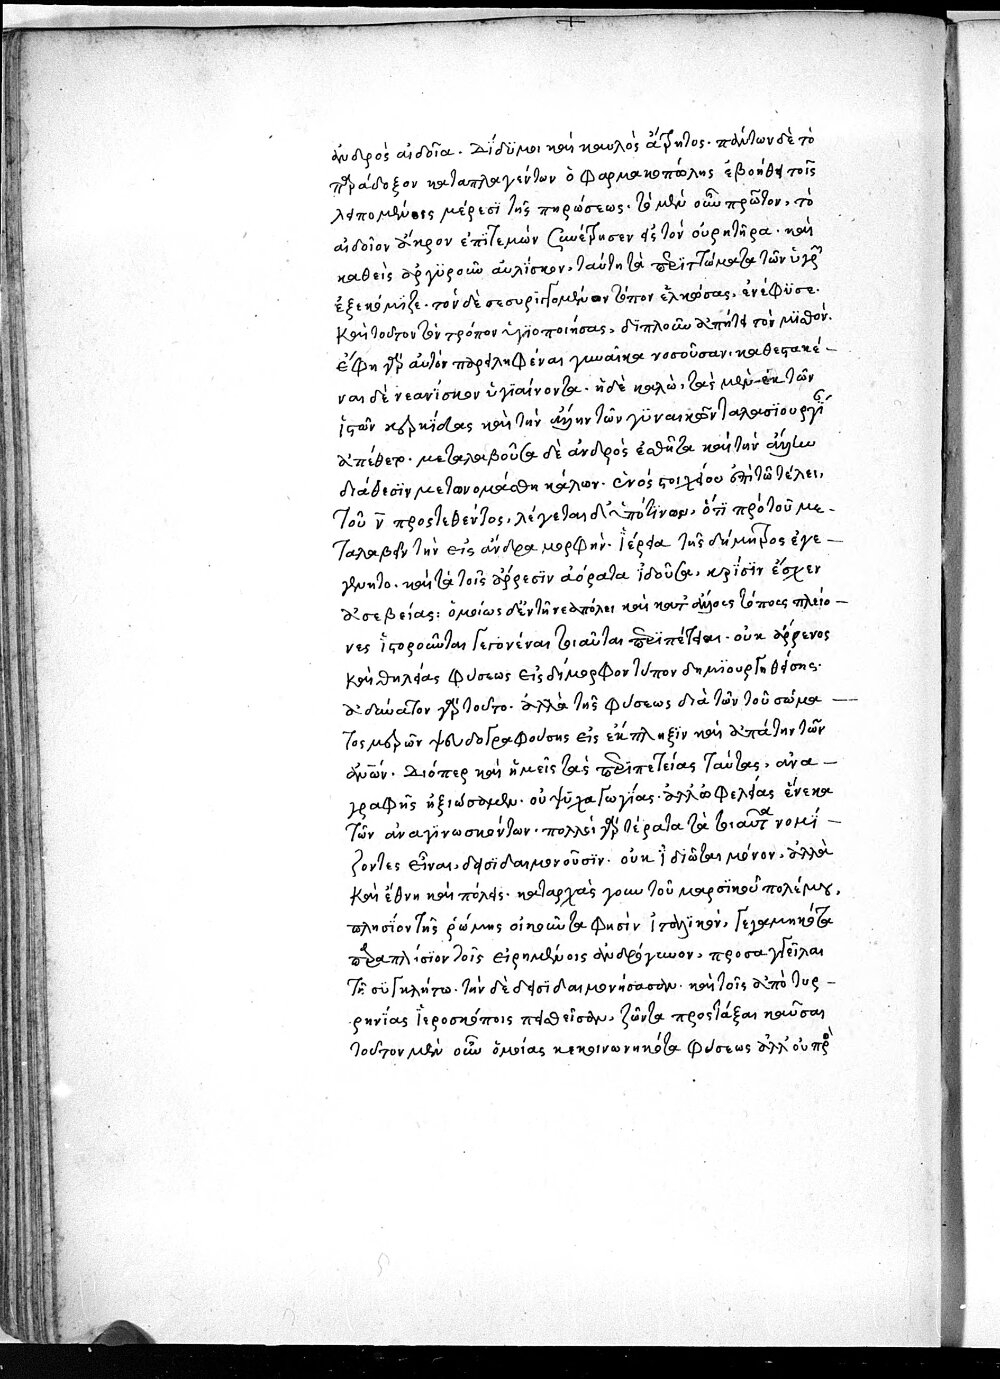 ἀνδρὸς αἰδοῖα. Δίδυμοι καὶ καυλὸς ἄτρητος. πάντων δὲ τὸ
παράδοξον καταπλαγέντων ὁ φαρμακοπώλης ἐβοήθει τοῖς
λειπομένοις μέρεσι τῆς πηρώσεως. τὸ μὲν οὖν πρῶτον, τὸ
αἰδοῖον ἄκρον ἐπιτεμὼν συνέτρησεν εἰς τὸν οὐρητῆρα. καὶ
καθεὶς ἀργυροῦν αὐλίσκον, ταύτῃ τὰ περιττώματα τῶν ὑγρῶν
ἐξεκόμιζε. τὸν δὲ σεσυριγγωμένον τόπον ἑλκώσας, ἐνέφυσε.
καὶ τοῦτον τὸν τρόπον ὑγιοποιήσας, διπλοῦν ἀπῄτει τὸν μισθόν.
ἔφη γὰρ αὐτὸν παρειληφέναι γυναῖκα νοσοῦσαν. καθεστακέ-
ναι δὲ νεανίσκον ὑγιαίνοντα. ἡ δὲ καλὼ, τὰς μὲν ἐκ τῶν
ἱστῶν κερκίδας καὶ τὴν ἄλλην τῶν γυναικῶν ταλασιουργίαν
ἀπέθετο. μεταλαβοῦσα δὲ ἀνδρὸς ἐσθῆτα καὶ τὴν ἄλλην
διάθεσιν μετωνομάσθη κάλων. ἑνὸς στοιχείου ἐπὶ τῷ τέλει,
τοῦ ν προστεθέντος, λέγεται δ' ὑπό τινων, ὅτι πρὸ τοῦ με-
ταλαβεῖν τὴν εἰς ἄνδρα μορφὴν. ἱέρεια τῆς δήμητρος ἐγε-
γένητο. καὶ τὰ τοῖς ἄρρεσιν ἀόρατα ἰδοῦσα, κρίσιν ἔσχεν
ἀσεβείας: ὁμοίως δ' ἐν τῇ νεαπόλει καὶ κατ' ἄλλους τόπους πλείο-
νες ἱστοροῦνται γεγονέναι τοιαῦται περιπέτειαι. οὐκ ἄρρενος
καὶ θηλείας φύσεως εἰς δίμορφον τύπον δημιουργηθείσης.
ἀδύνατον γὰρ τοῦτο. ἀλλὰ τῆς φύσεως διὰ τῶν τοῦ σώμα-
τος μερῶν ψευδογραφούσης εἰς ἔκπληξιν καὶ ἀπάτην τῶν
ἀνῶν. Διόπερ καὶ ἡμεῖς τὰς περιπετείας ταύτας, ἀνα-
γραφῆς ἠξιώσαμεν. οὐ ψυχαγωγίας. ἀλλ' ὠφελείας ἕνεκα
τῶν ἀναγινωσκόντων. πολλοὶ γὰρ τέρατα τὰ τοιαῦτα νομί-
ζοντες εἶναι, δεισιδαιμονοῦσιν. οὐκ ἰδιῶται μόνον, ἀλλὰ
καὶ ἔθνη καὶ πόλεις. καταρχὰς γοῦν τοῦ μαρσικοῦ πολέμου,
πλησίον τῆς ῥώμης οἰκοῦντα φησὶν ἰταλικὸν, γεγαμηκότα
παραπλήσιον τοῖς εἰρημένοις ἀνδρόγυνον, προσαγγεῖλαι
τῇ συγκλήτῳ. τὴν δὲ δεισιδαιμονήσασαν. καὶ τοῖς ἀπὸ τυρ-
ρηνίας ἱεροσκόποις πεισθεῖσαν, ζῶντα προστάξαι καῦσαι
τοῦτον μὲν οὖν ὁμοίας κεκοινωνηκότα φύσεως ἀλλ' οὐ πρὸς